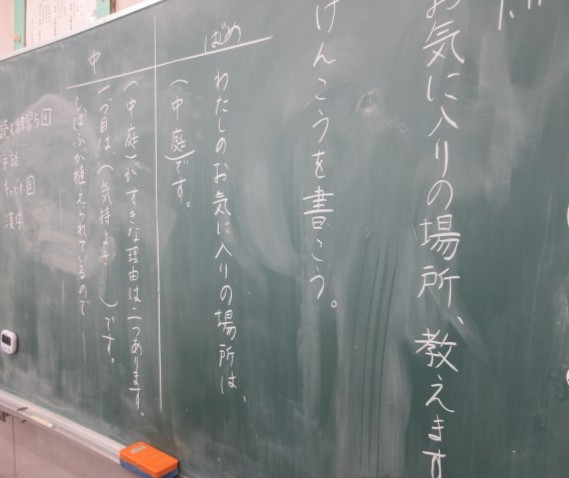 お気に入りの場所、教えます
げんこうを書こう。
はじめ
わたしのお気に入りの場所は、
(中庭)です。
中
(中庭)がすきな理由は二つあります。
一つ目は(気持よさ)です。
しばふが植えられているので
手話
漢字